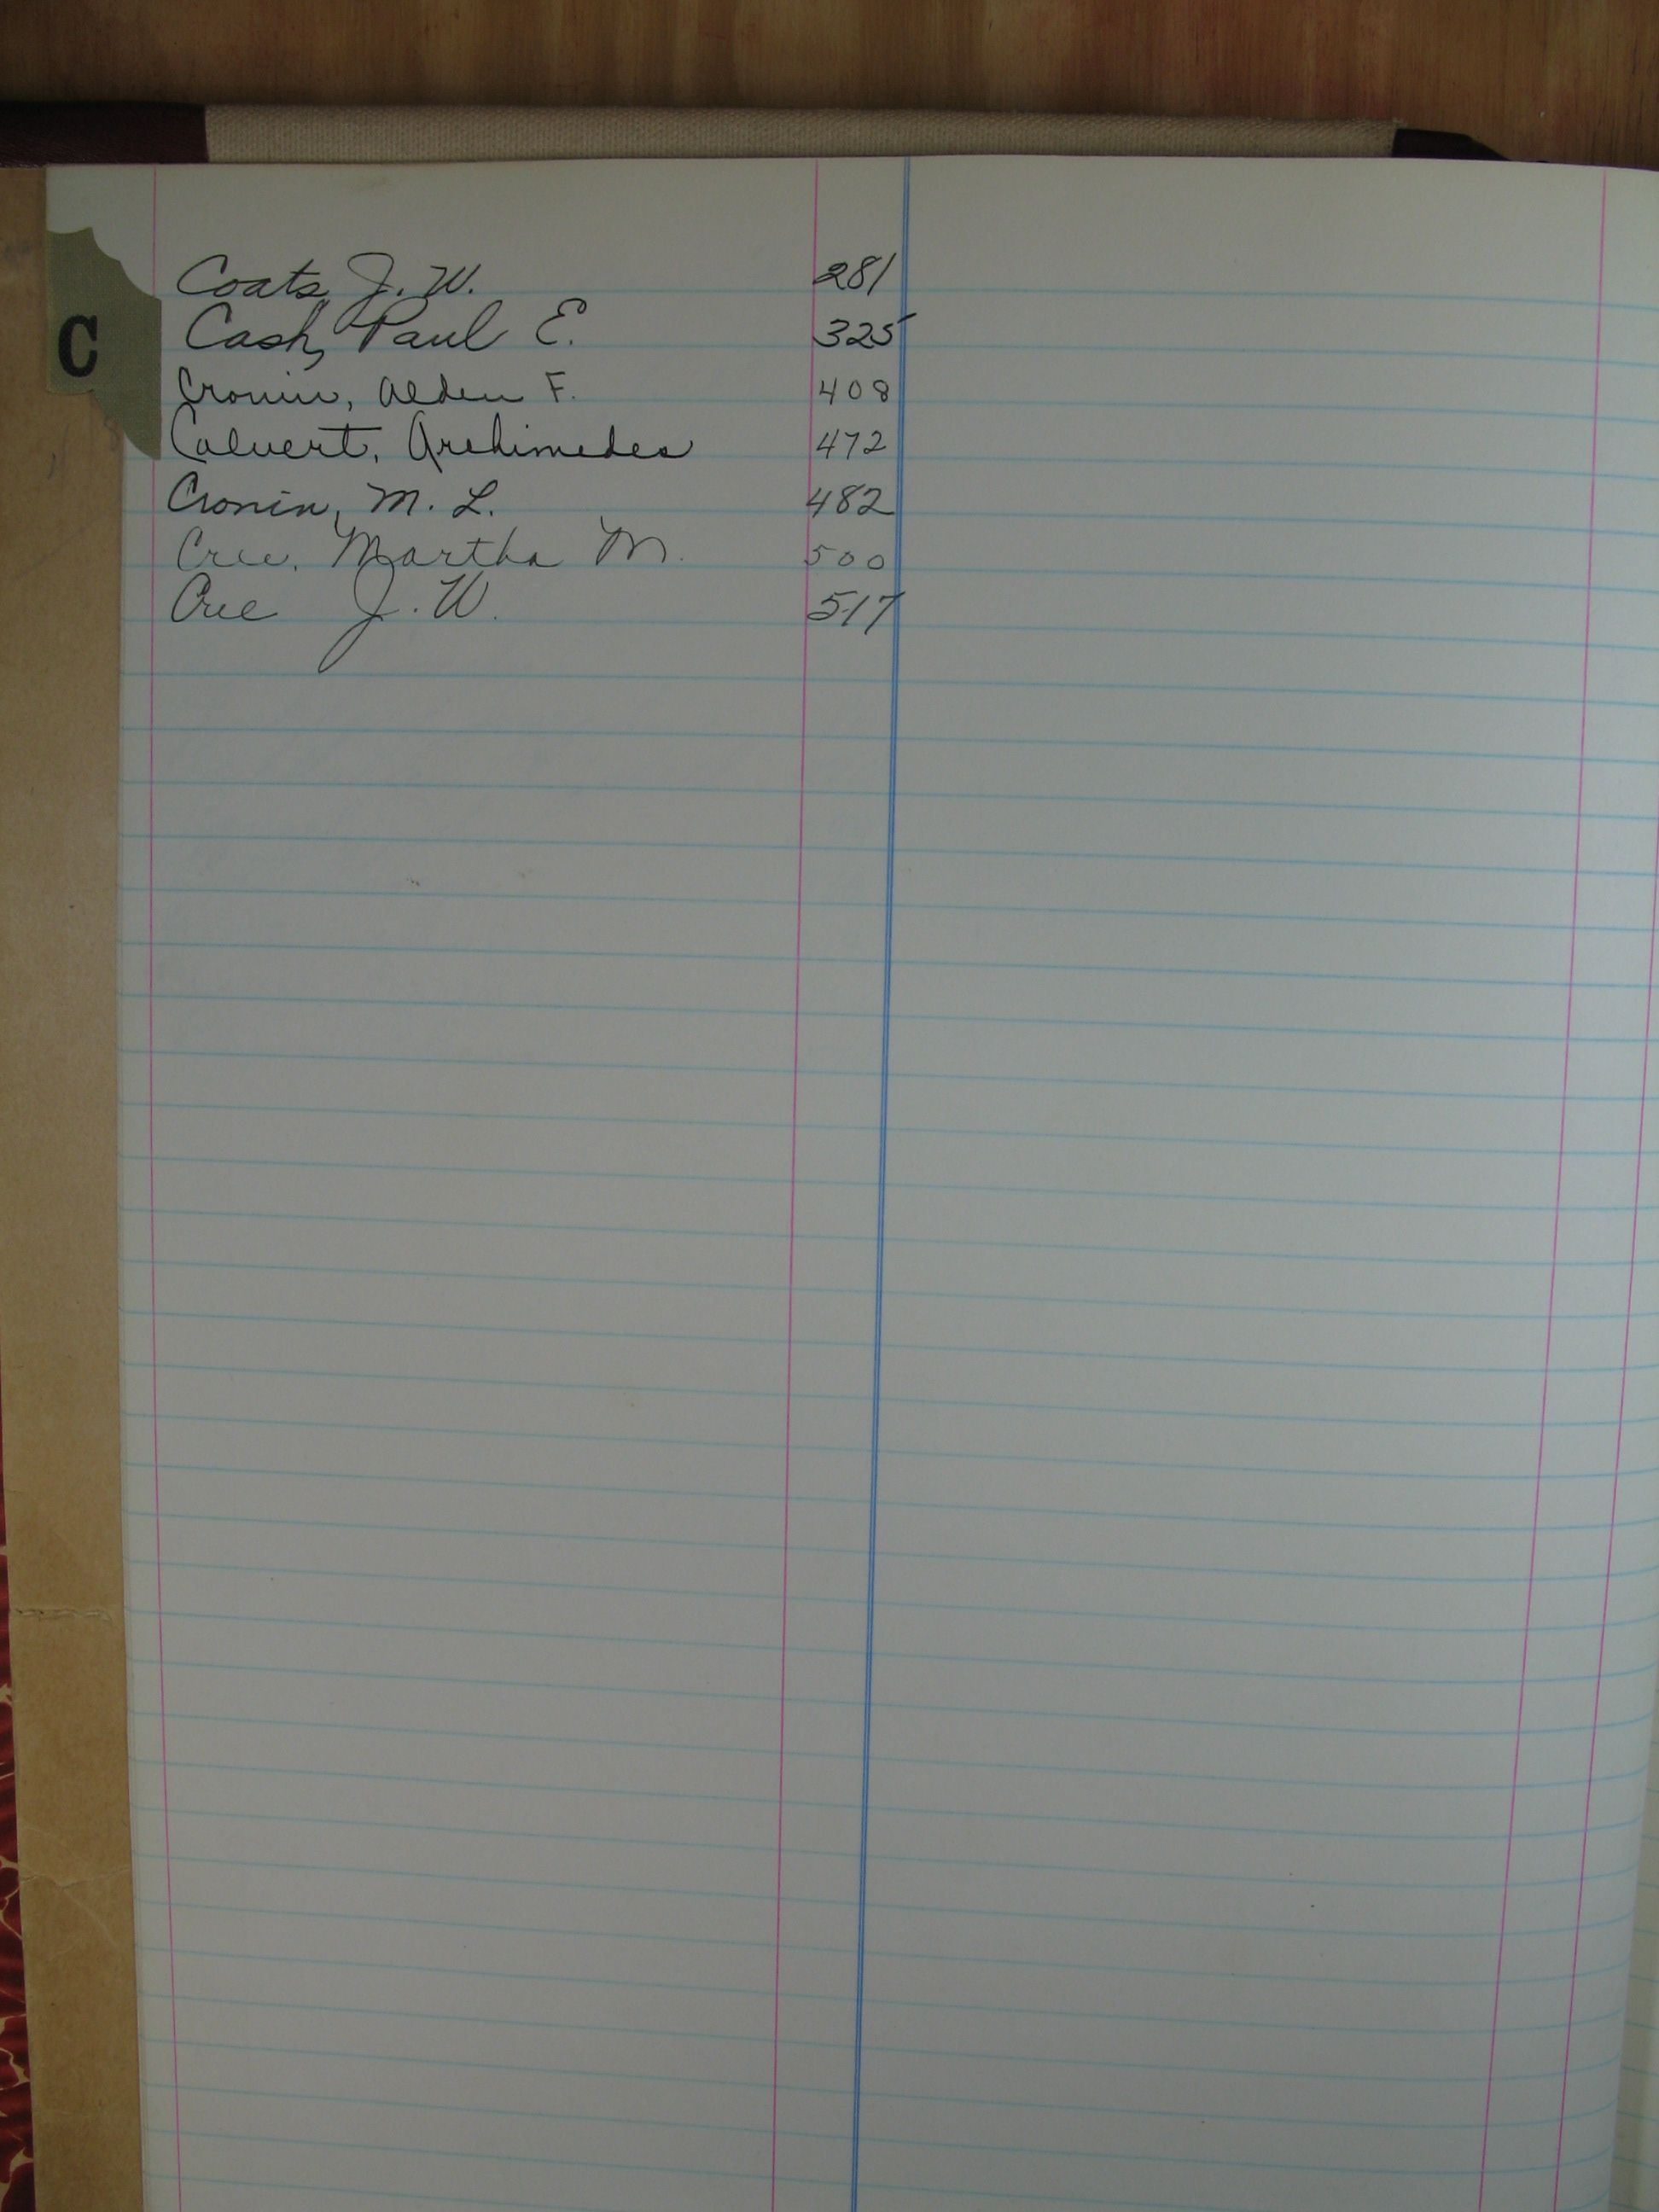 C
Coats J. W. 281
Cash, Paul E. 325
Cronin, Alden F. 408
Calvert, Archimedes 472
Cronin, M. L. 482
Cree, Martha M. 500
Cree J. W. 517